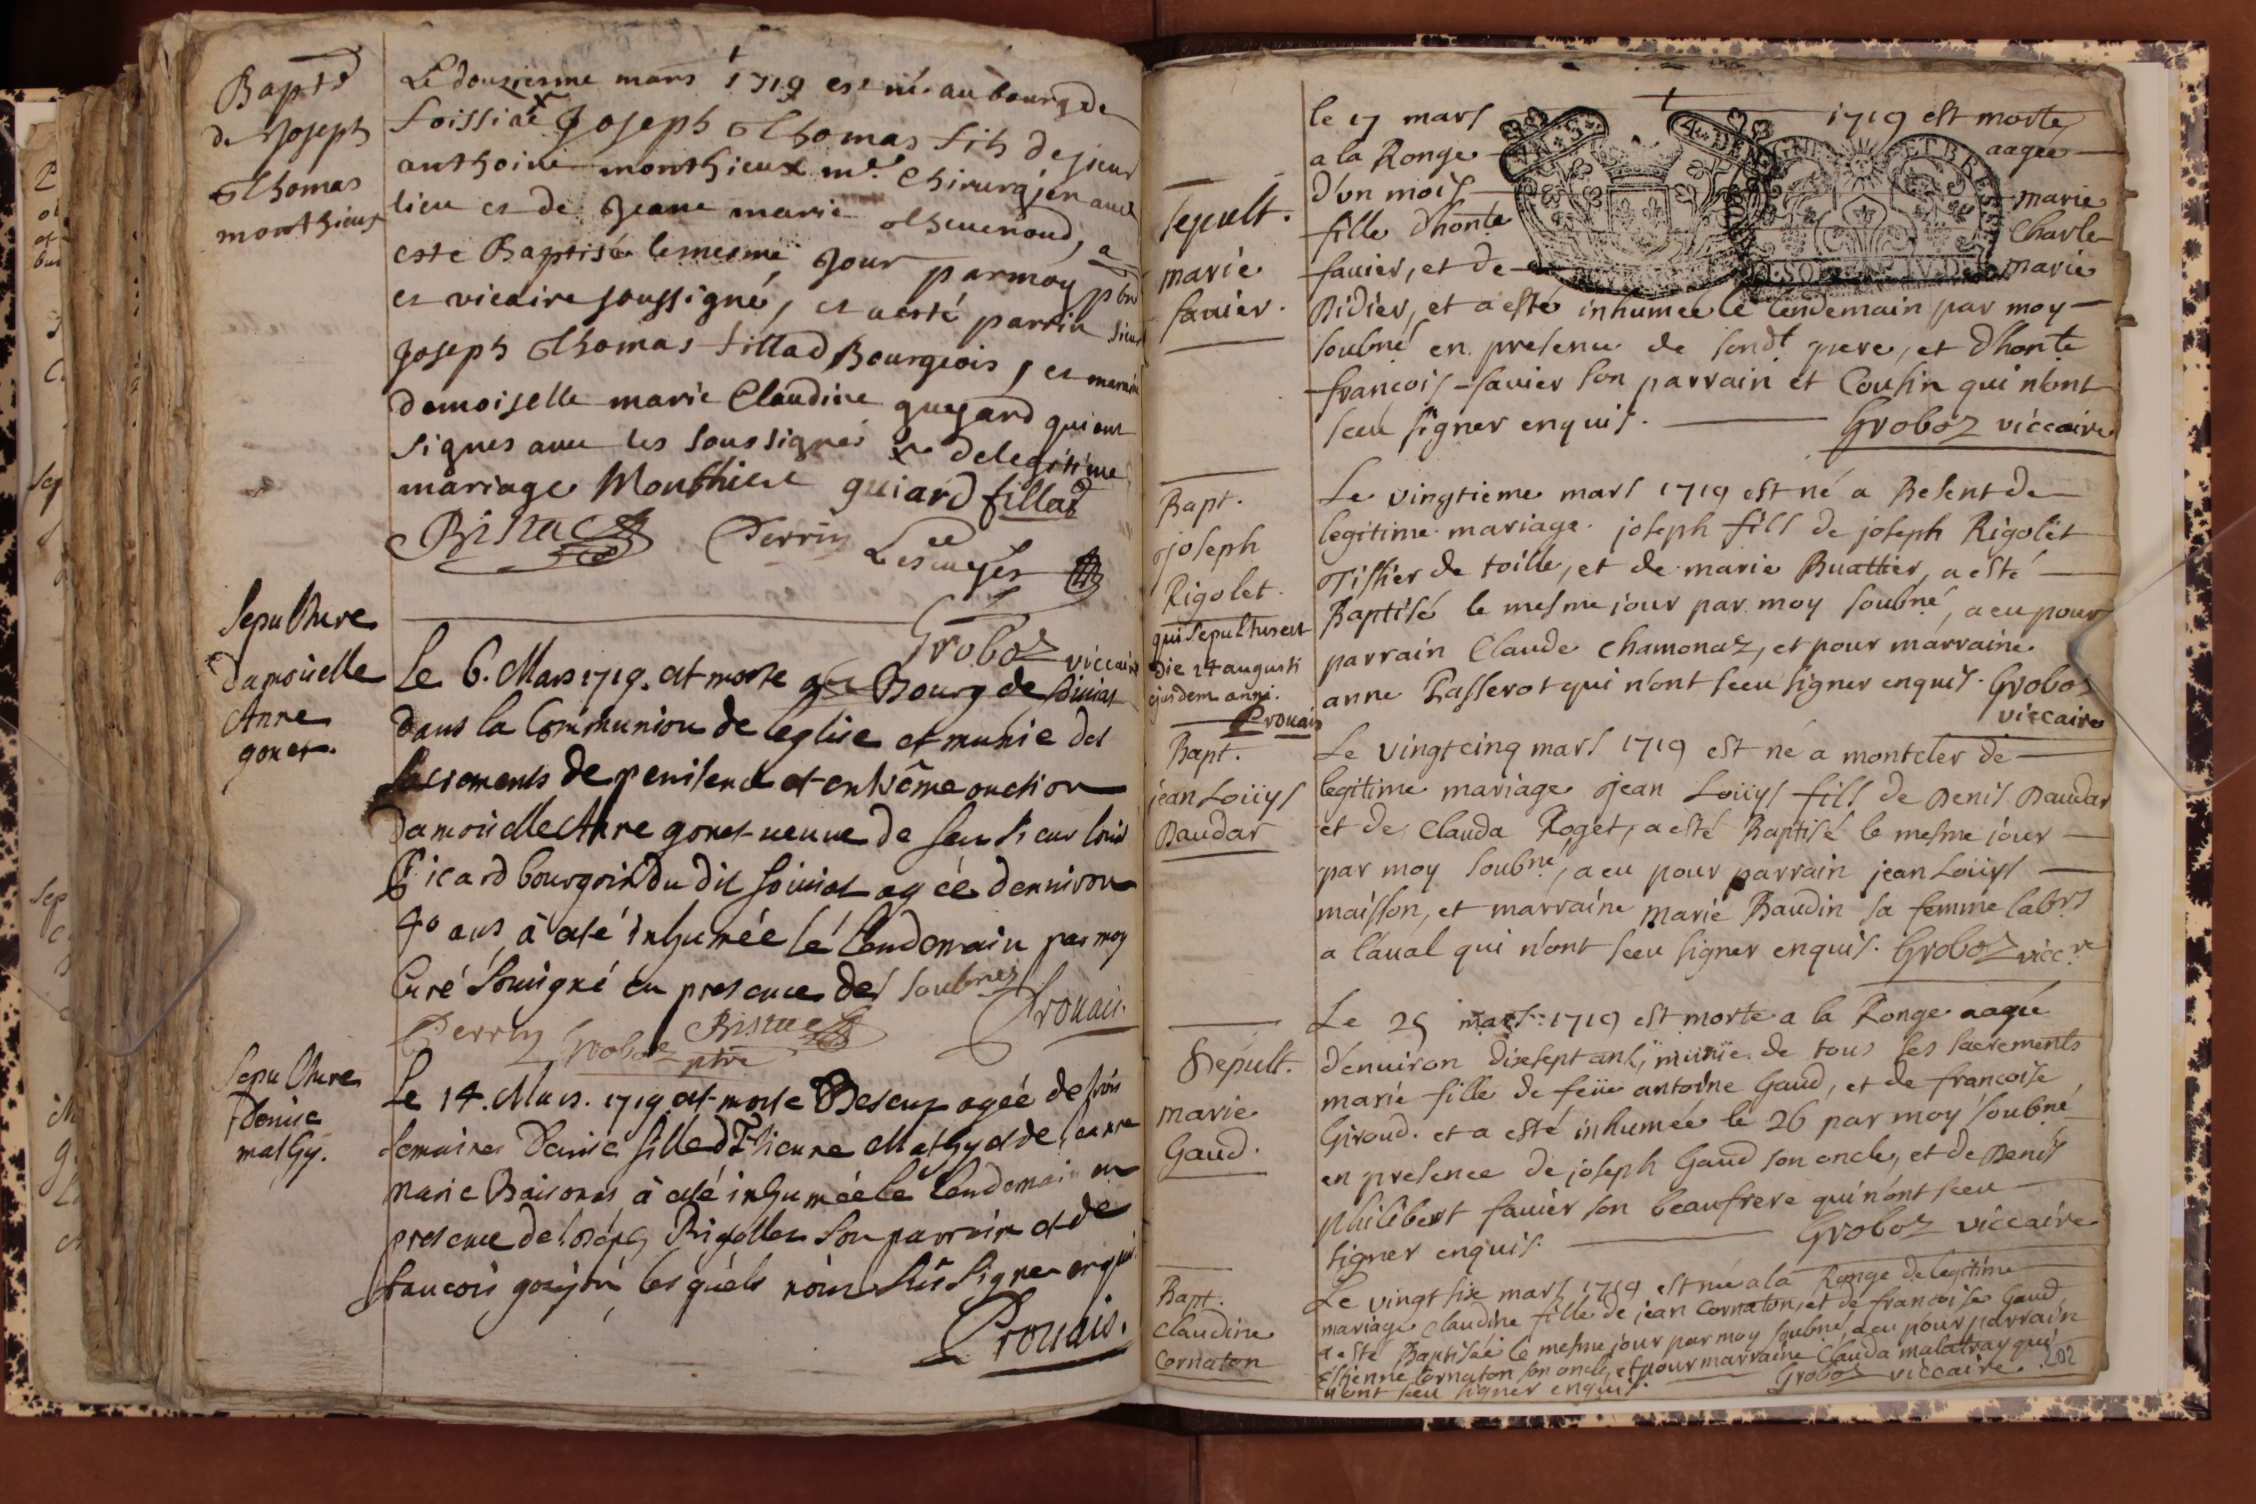 Bapt.e
de Joseph
Thomas
monthieux
Le douziesme mars 1719 est né au bourg de
foissiat Joseph Thomas fils de sieur
anthoine monthieux m.e Chirurgien aud
lieu et de Jeane marie Theuenoud, a
esté Baptisé le mesme Jour parmoy pbr
et vicaire soussigné, et a esté parrin sieur
Joseph Thomas fillad Bourgeois, et marraine
demoiselle marie Claudine guyard qui ont
signes auec les soussignés x de legitime
mariage Monthieux guiard fillad
Bistac Perrin Lescuyer
Groboz viccaire
Sepulture
Damoiselle
Anne
gonet.
Le 6. Mars 1719. est morte au Bourg de foissiat
dans la Communion de leglise et munie des
sacrements de penitence et extrême onction
damoiselle Anne gonet ueuue de feu sieur louis
Picard bourgois du dit foissiat agée denniron
40 ans à esté inhumée le lendemain par moy
Curé sousigné en presence des soubnés
Perrin Groboz Bistac Prouais.
ptre
Sepulture
Denise
mathy.
Le 14. Mars. 1719 est morte Besenz agée de trois
semaines Denise fille d'Etienne Mathy et de
marie à esté inhumée le lendemain en
presence de Joseph Rigollet son parrain et de
francois goujon lesquels n'ont sceu signer enquis
Prouais.
Sepult.
marie
fauier.
le 17 mars 1719 est morte
a la Ronge aagee
d'un mois marie
fille d'honte Charle
fauier, et de marie
Didier, et a esté inhumée le lendemain par moy
soubné en presence de sondt pere, et d'honte
francois fauier son parrain et Cousin qui n'ont
sceu signer enquis. Groboz viccaire
Bapt.
joseph
Rigolet.
qui sepultus est
die 24 augusti
ejusdem anni.
Prouais
Le vingtieme mars 1719 est né a Besent de
legitime mariage joseph fils de joseph Rigolet
Tissier de toille, et de marie Buattier, a esté
Baptisé le mesme jour par moy soubné, a eu pour
parrain Claude Chamonaz, et pour marraine
anne Passerot qui n'ont sceu signer enquis. Groboz
viccaire
Bapt.
jean Loüys
Daudar
Le vingt cinq mars 1719 est né a montcler de
legitime mariage jean Loüys fils de Denis Daudar
et de Clauda Roget, a esté Baptisé le mesme jour
par moy soubné, a eu pour parrain jean Loüys
maisson, et marraine marie Baudin sa femme labrs
a l'aual qui n'ont sceu signer enquis. Groboz vicc.re
Sepult.
marie
Gaud.
Le 25 mars 1719 est morte a la Ronge aagée
d'enuiron dixsept ans, munie de tous les sacrements
marie fille de feüe antoine Gaud, et de francoise
Giroud. et a esté inhumée le 26 par moy soubné
en presence de joseph Gaud son oncle, et de Denis
philibert fauier son beaufrere qui n'ont sceu
signer enquis. Groboz viccaire
Bapt.
Claudine
Cornaton
Le vingt six mars 1719 est née a la Ronge de legitime
mariage Claudine fille de jean Cornaton, et de francoise Gaud
a esté Baptisée le mesme jour par moy soubné a eu pour parrain
Estienne Cornaton son oncle, et pour marraine Clauda malatray qui
n'ont sceu signer enquis. Groboz viccaire.
202